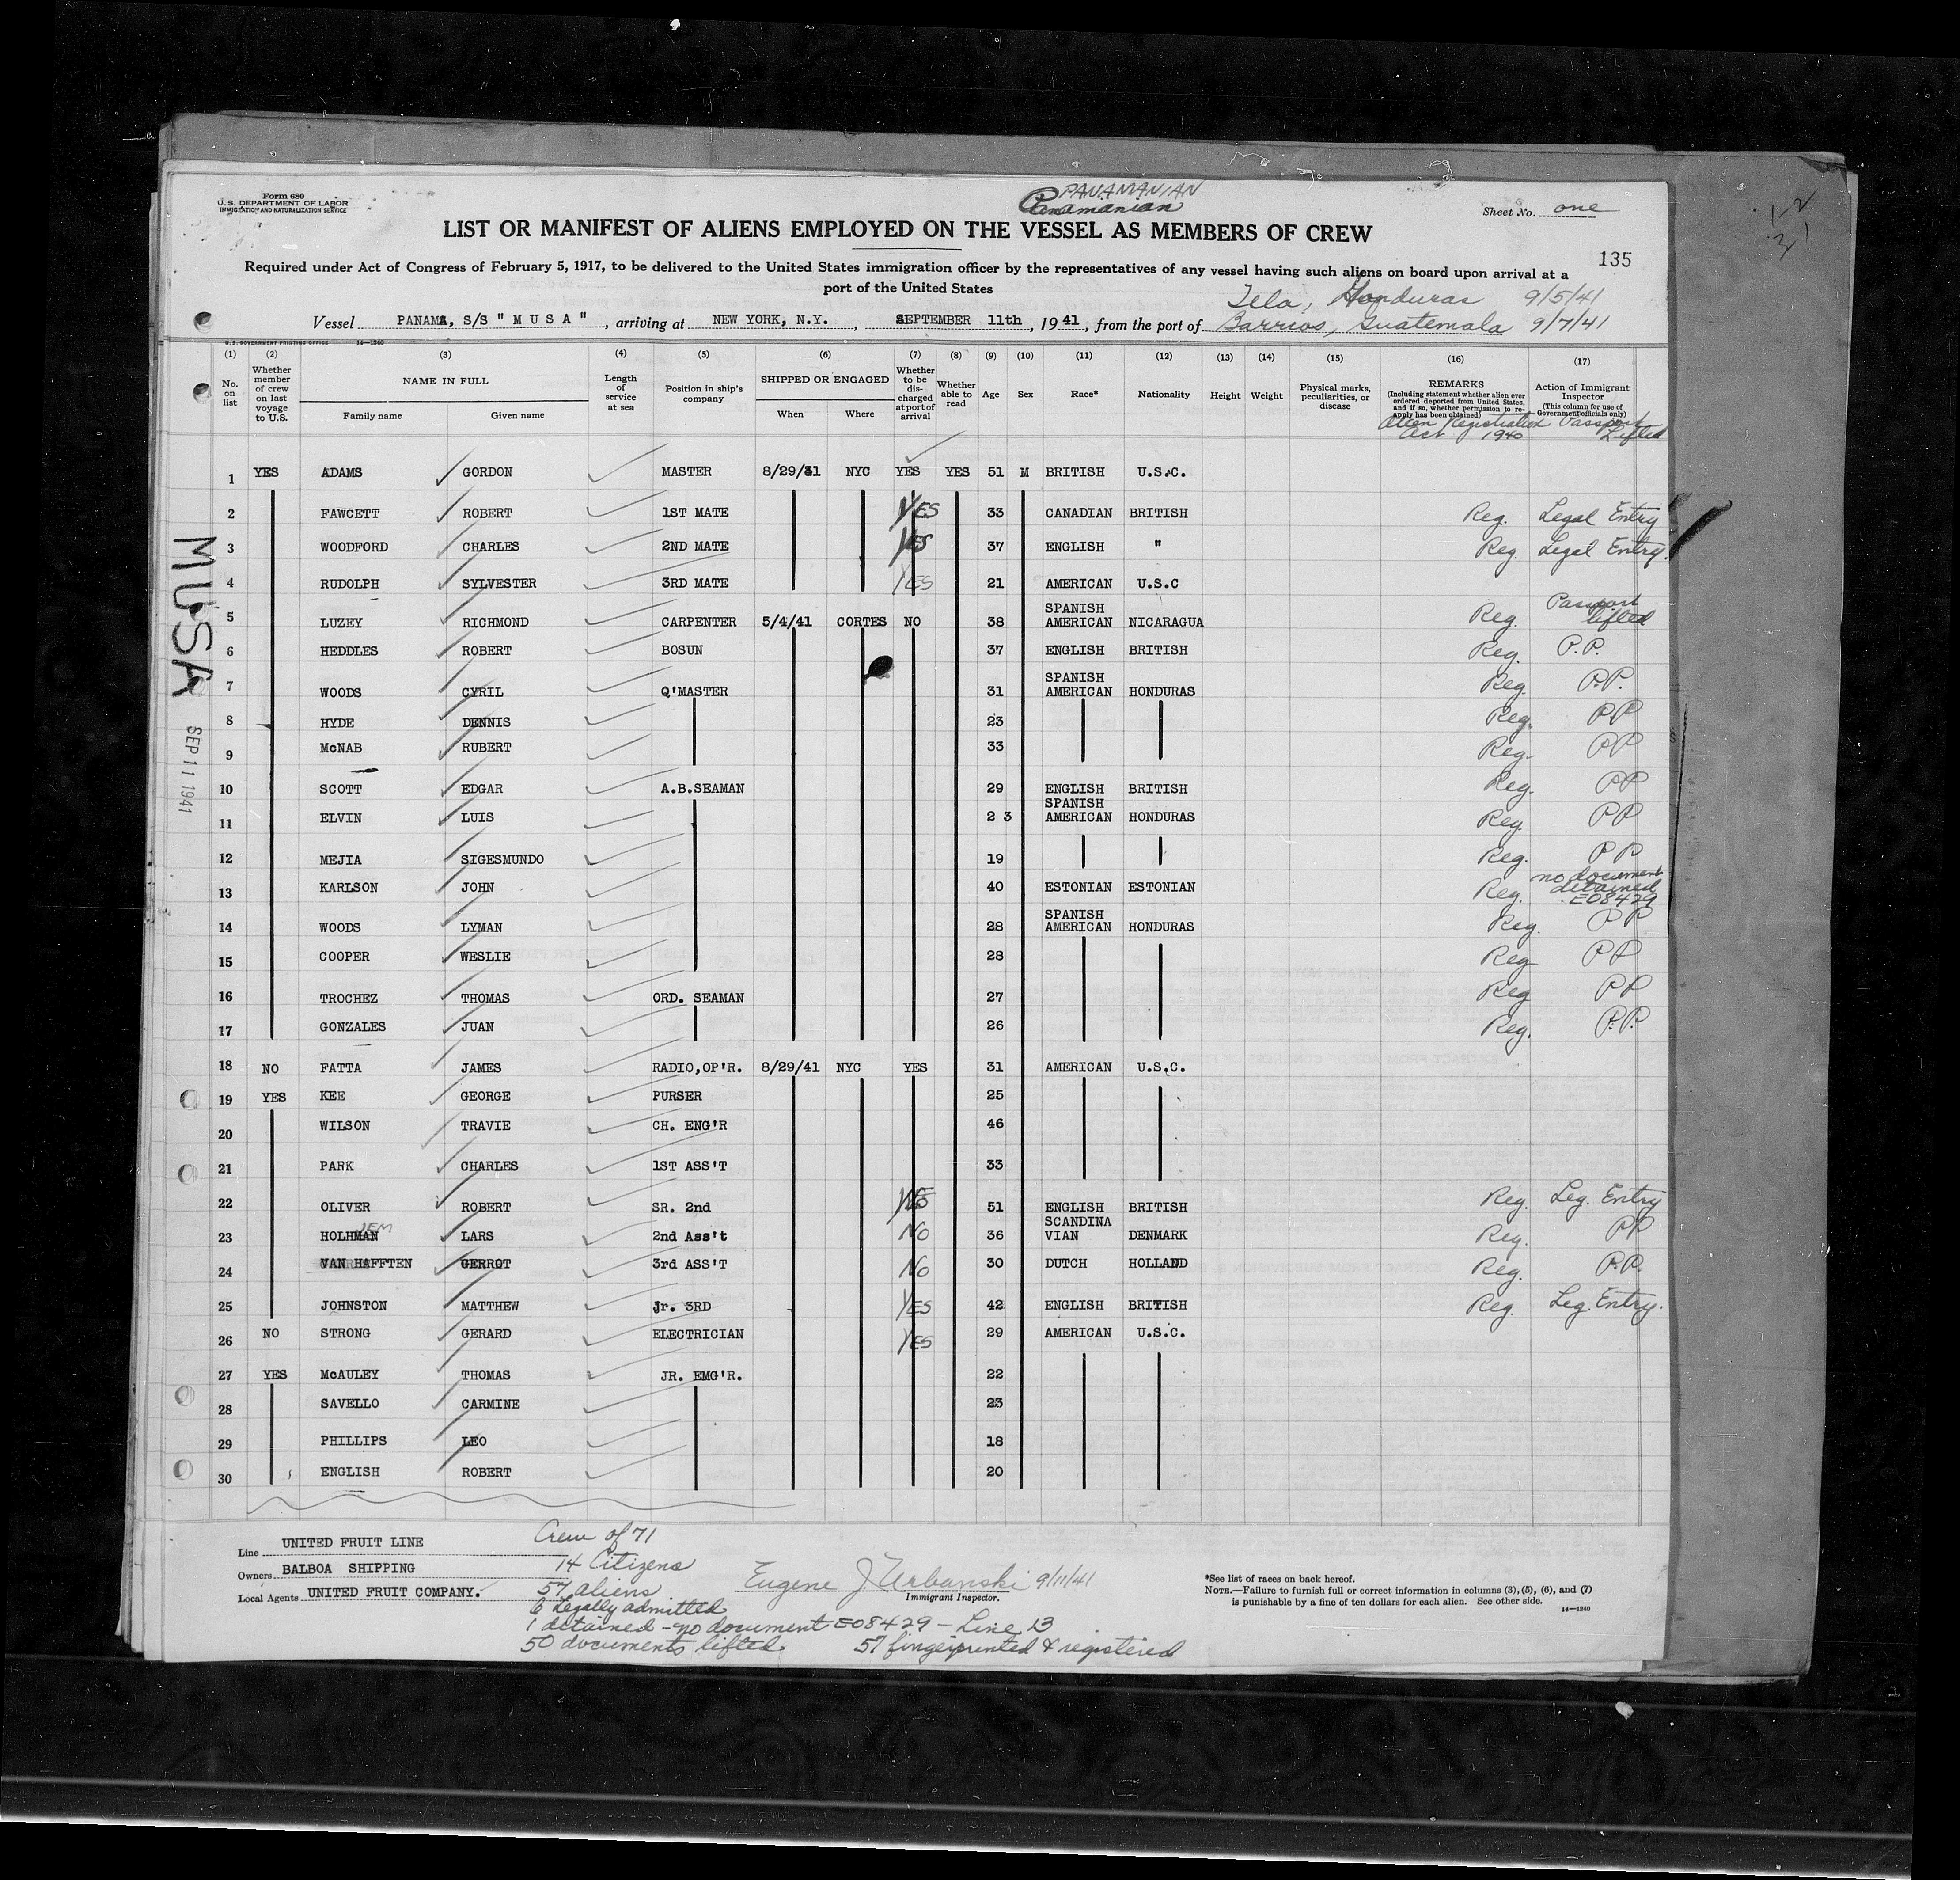 Form 680
U.S. DEPARTMENT OF LABOR
IMMIGRATION AND NATURALIZATION SERVICE
PANAMANIAN
Panamanian
Sheet No. one
LIST OR MANIFEST OF ALIENS EMPLOYED ON THE VESSEL AS MEMBERS OF CREW
135
Required under Act of Congress of February 5, 1917, to be delivered to the United States immigration officer by the representatives of any vessel having such aliens on board upon arrival at a
port of the United States
Tela, Honduras 9/5/41
Vessel PANAMA, S/S "MUSA", arriving at NEW YORK, N.Y., SEPTEMBER 11th, 1941, from the port of Barrios, Guatemala 9/7/41
U.S. GOVERNMENT PRINTING OFFICE 14—1240
(1) (2) (3) (4) (5) (6) (7) (8) (9) (10) (11) (12) (13) (14) (15) (16) (17)
No. on list
Whether member of crew on last voyage to U.S.
NAME IN FULL
Family name
Given name
Length of service at sea
Position in ship's company
SHIPPED OR ENGAGED
When
Where
Whether to be discharged at port of arrival
Whether able to read
Age
Sex
Race*
Nationality
Height
Weight
Physical marks, peculiarities, or disease
REMARKS
(Including statement whether alien ever ordered deported from United States, and if so, whether permission to re-apply has been obtained)
Alien Registration Act 1940
Action of Immigrant Inspector
(This column for use of Government officials only)
Passport Lifted
1 YES ADAMS GORDON MASTER 8/29/31 NYC YES YES 51 M BRITISH U.S.C.
2 FAWCETT ROBERT 1ST MATE YES 33 CANADIAN BRITISH Reg. Legal Entry
3 WOODFORD CHARLES 2ND MATE YES 37 ENGLISH " Reg. Legal Entry.
4 RUDOLPH SYLVESTER 3RD MATE YES 21 AMERICAN U.S.C
5 LUZEY RICHMOND CARPENTER 5/4/41 CORTES NO 38 SPANISH AMERICAN NICARAGUA Reg. Passport lifted
6 HEDDLES ROBERT BOSUN 37 ENGLISH BRITISH Reg. P.P.
7 WOODS CYRIL Q'MASTER 31 SPANISH AMERICAN HONDURAS Reg. P.P.
8 HYDE DENNIS 23 Reg. PP
9 McNAB RUBERT 33 Reg. PP
10 SCOTT EDGAR A.B.SEAMAN 29 ENGLISH BRITISH Reg. PP
11 ELVIN LUIS 2 3 SPANISH AMERICAN HONDURAS Reg PP
12 MEJIA SIGESMUNDO 19 Reg. PP
13 KARLSON JOHN 40 ESTONIAN ESTONIAN Reg. no document detained E08429
14 WOODS LYMAN 28 SPANISH AMERICAN HONDURAS Reg. PP
15 COOPER WESLIE 28 Reg PP
16 TROCHEZ THOMAS ORD. SEAMAN 27 Reg PP
17 GONZALES JUAN 26 Reg. P.P.
18 NO FATTA JAMES RADIO,OP'R. 8/29/41 NYC YES 31 AMERICAN U.S.C.
19 YES KEE GEORGE PURSER 25
20 WILSON TRAVIE CH. ENG'R 46
21 PARK CHARLES 1ST ASS'T 33
22 OLIVER ROBERT SR. 2nd 51 ENGLISH BRITISH Reg. Leg. Entry
23 HOLHMAN JEM LARS 2nd Ass't NO 36 SCANDINA VIAN DENMARK Reg. PP
24 VAN HAFFTEN GERROT 3rd ASS'T NO 30 DUTCH HOLLAND Reg. P.P.
25 JOHNSTON MATTHEW Jr. 3RD YES 42 ENGLISH BRITISH Reg. Leg. Entry.
26 NO STRONG GERARD ELECTRICIAN YES 29 AMERICAN U.S.C.
27 YES McAULEY THOMAS JR. EMG'R. 22
28 SAVELLO CARMINE 23
29 PHILLIPS LEO 18
30 ENGLISH ROBERT 20
MUSA
SEP 11 1941
Line UNITED FRUIT LINE
Owners BALBOA SHIPPING
Local Agents UNITED FRUIT COMPANY.
Crew of 71
14 Citizens
57 aliens
6 Legally admitted
1 detained - no document E08429 - Line 13
50 documents lifted 57 fingerprinted & registered
Eugene J Urbanski 9/11/41
Immigrant Inspector.
*See list of races on back hereof.
NOTE.—Failure to furnish full or correct information in columns (3), (5), (6), and (7)
is punishable by a fine of ten dollars for each alien. See other side.
14—1240